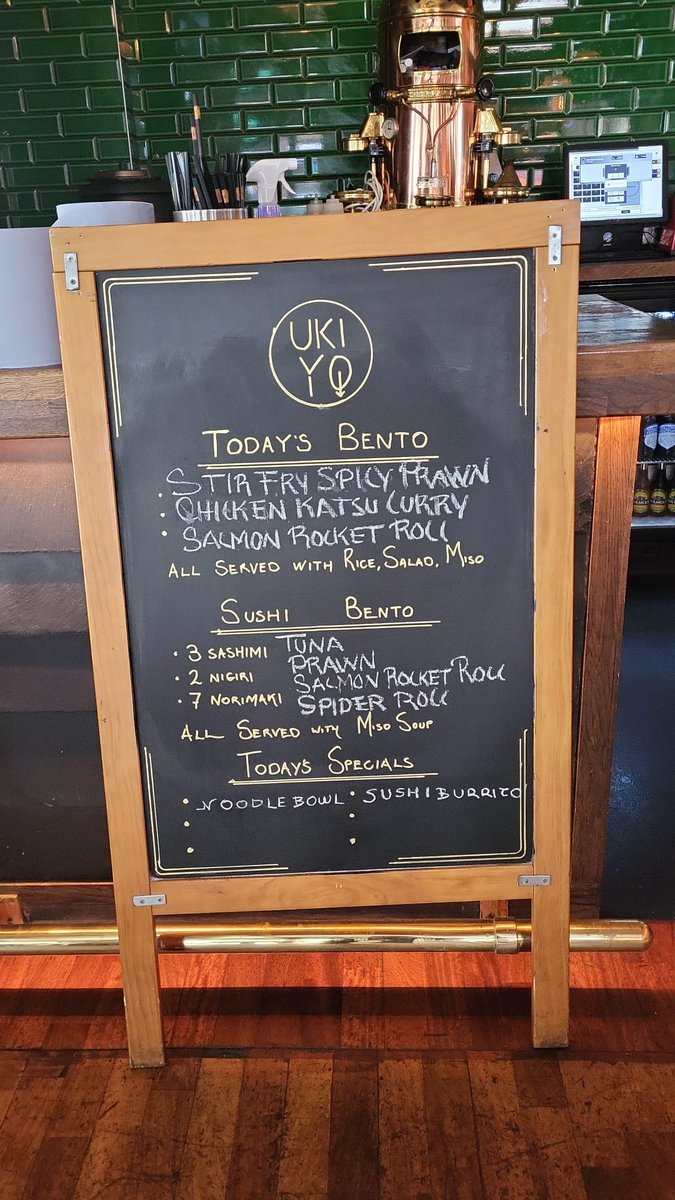 UKI
YO
TODAY'S BENTO
STIR FRY SPICY PRAWN
• CHICKEN KATSU CURRY
• SALMON ROCKET ROLL
ALL SERVED WITH RICE, SALAD, MISO
SUSHI BENTO
• 3 SASHIMI TUNA
• 2 NIGIRI PRAWN
• 7 NORIMAKI SALMON ROCKET ROLL
SPIDER ROLL
ALL SERVED WITH MISO SOUP
TODAY'S SPECIALS
• NOODLE BOWL • SUSHI BURRITO